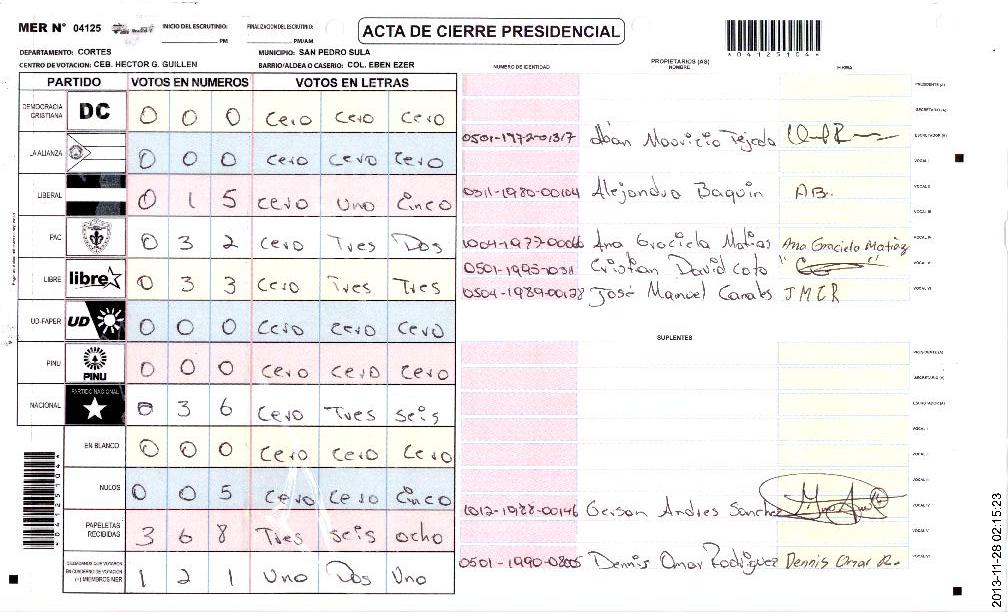 MER N° 04125 INICIO DEL ESCRUTINIO: FINALIZACIÓN DEL ESCRUTINIO: ACTA DE CIERRE PRESIDENCIAL
PM PM/AM
*04125104*
DEPARTAMENTO: CORTES MUNICIPIO: SAN PEDRO SULA
CENTRO DE VOTACION: CEB. HECTOR G. GUILLEN BARRIO/ALDEA O CASERIO: COL. EBEN EZER
PARTIDO VOTOS EN NUMEROS VOTOS EN LETRAS
DEMOCRACIA CRISTIANA DC 0 0 0 Cero Cero Cero
LA ALIANZA 0 0 0 Cero Cero Cero
LIBERAL 0 1 5 Cero Uno Cinco
PAC 0 3 2 Cero Tres Dos
LIBRE libre 0 3 3 Cero Tres Tres
UD-FAPER UD 0 0 0 Cero Cero Cero
PINU PINU 0 0 0 Cero Cero Cero
NACIONAL PARTIDO NACIONAL 0 3 6 Cero Tres Seis
EN BLANCO 0 0 0 Cero Cero Cero
NULOS 0 0 5 Cero Cero Cinco
PAPELETAS RECIBIDAS 3 6 8 Tres Seis ocho
CIUDADANOS QUE VOTARON EN CUADERNO DE VOTACION (+) MIEMBROS MER 1 2 1 Uno Dos Uno
*04125104*
NUMERO DE IDENTIDAD PROPIETARIOS (AS) NOMBRE FIRMA
PRESIDENTE (A)
SECRETARIO (A)
0501-1972-01317 Mauricio Tejeda ESCRUTADOR (A)
VOCAL I
0311-1980-00104 Alejandro Baquin AB. VOCAL II
VOCAL III
1004-1977-00066 Ana Graciela Matias Ana Graciela Matiaz VOCAL IV
0501-1995-0311 Cristian David Coto VOCAL V
0504-1989-00128 José Manuel Canales JMCR VOCAL VI
SUPLENTES
PRESIDENTE (A)
SECRETARIO (A)
ESCRUTADOR (A)
VOCAL I
VOCAL II
VOCAL III
1012-1988-00146 Gerson Andres Sanchez VOCAL IV
VOCAL V
0501-1990-02805 Dennis Omar Rodriguez Dennis Omar R. VOCAL VI
2013-11-28 02:15:23